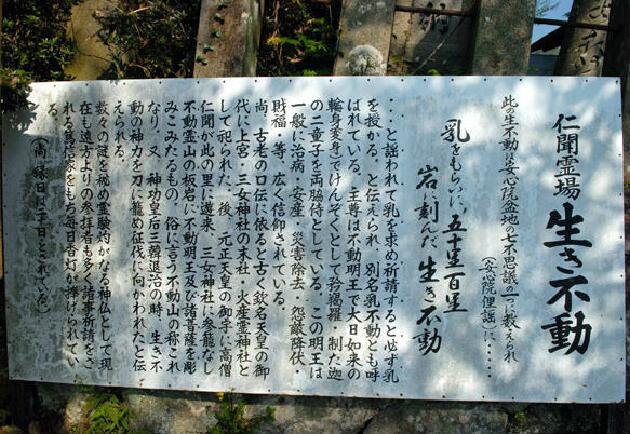 仁聞霊場
生き不動
此の生不動は安心院盆地の七不思議の一つに数えられ
(安心院俚謡)に……
乳をもらいに、五十里百里
岩に刻んだ生き不動
…と謡われて乳を求め祈請すると必す乳
を授かる、と伝えられ、別名乳不動とも呼
ばれている。主尊は不動明王で大日如来の
輪身変身)でけんぞくとして矜羯羅・制た迦
の二童子を両脇侍としている。この明王は
一般に治病・安産・災害除去・怨敵降伏・
財福、等、広く信仰されている。
尚、古老の口伝に依ると古く欽名天皇の御
代に上宮・三女神社の末社・火産霊神社と
して祀られた。後、元正天皇の御宇に高僧
仁聞が此の里に遊来、三女神社に参籠なし
不動霊山の板岩に不動明王及び諸菩薩を彫
みこみたるもの。俗に言う不動山の称これ
なり、又、神功皇后三韓退治の時、生き不
動の神力を刀に籠め征伐に向かわれたと伝
えられる。
数々の謎を秘め霊験灼かなる神仏として現
在も遠方よりの参拝者も多く諸事祈請をさ
れる篤信家をもち毎日香灯が捧げられてい
る。
(尚 縁日は二十日とされている)